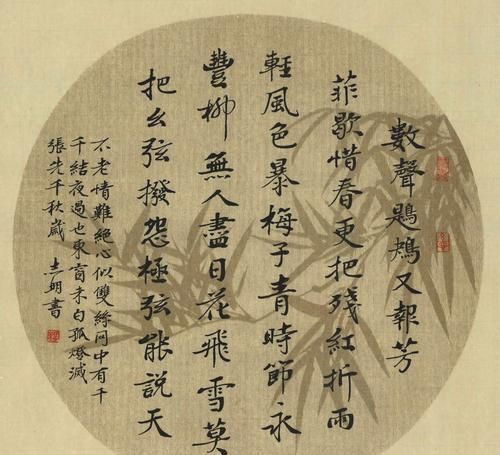 數聲鶗鴂又報芳
菲歇惜春更把残紅折雨
輕風色暴梅子青時節永
豐柳無人盡日花飛雪莫
把幺弦撥怨極弦能説天
不老情難絶心似雙絲网中有千
千結夜過也東窗未白孤燈滅
張先千秋歲 志明書